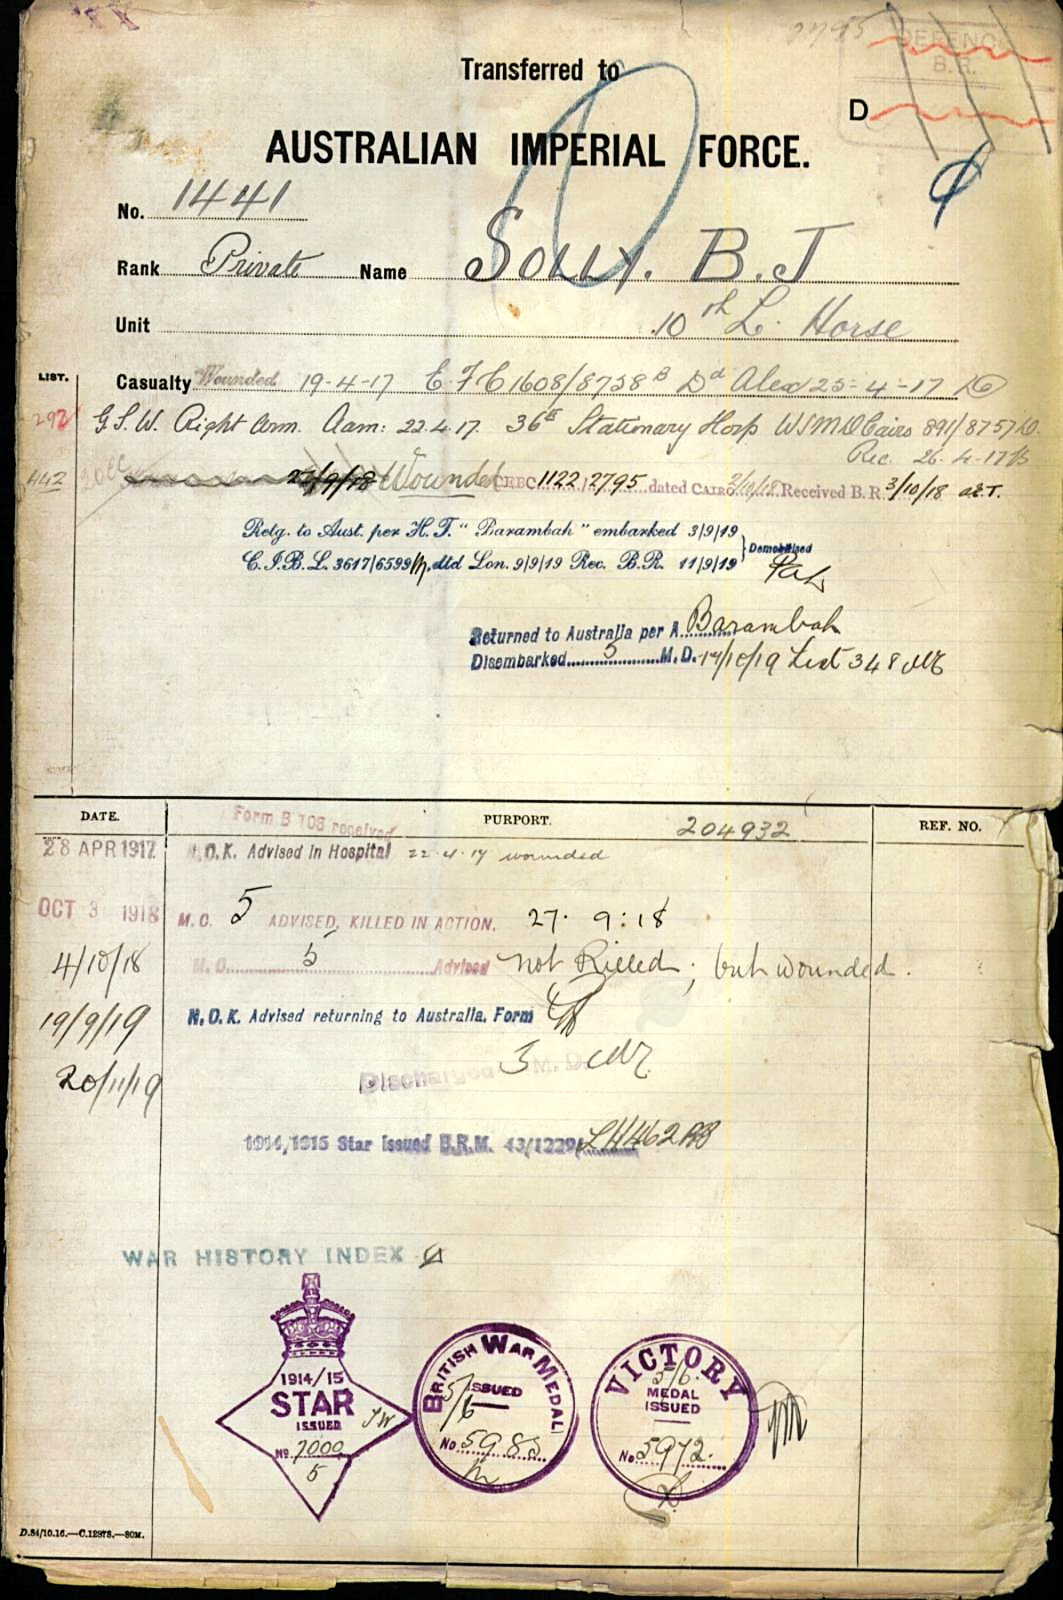 2795
DEFENCE
B.R.
Transferred to
D
AUSTRALIAN IMPERIAL FORCE.
No. 1441
Rank Private Name Solly. B. J
Unit 10th L. Horse
LIST.
Casualty Wounded 19-4-17 C.F.C 1608/8738 B Dd Alex 25-4-17
292 G.S.W. Right Arm. Adm: 22.4.17. 36th Stationary Hosp 891/8757
Rec. 26-4-17
442 Wounded CRBC 1122/2795 dated CAIRO 2/10/18 Received B.R. 3/10/18
Retg. to Aust. per H.T. "Barambah" embarked 3/9/19
C.I.B.L. 3617/6599 dtd Lon. 9/9/19 Rec. B.R. 11/9/19 Demobilised
Returned to Australia per A. Barambah
Disembarked 5 M.D. List 348
DATE. PURPORT. 204932 REF. NO.
Form B 103 received
28 APR 1917 N.O.K. Advised in Hospital 22.4.17 wounded
OCT 3 1918 M.C. 5 ADVISED, KILLED IN ACTION. 27. 9:18
4/10/18 M.C. 5 Advised not Killed; but wounded.
19/9/19 N.O.K. Advised returning to Australia. Form
20/11/19 Discharged 5 M.D.
1914/1915 Star Issued B.R.M. 43/1229 LH462
WAR HISTORY INDEX
1914/15
STAR
ISSUED
No 7000
5
BRITISH WAR MEDAL
ISSUED
5/6
No 5983
VICTORY
5/6.
MEDAL
ISSUED
No 5972.
D.84/10.16.—C.12978.—80M.